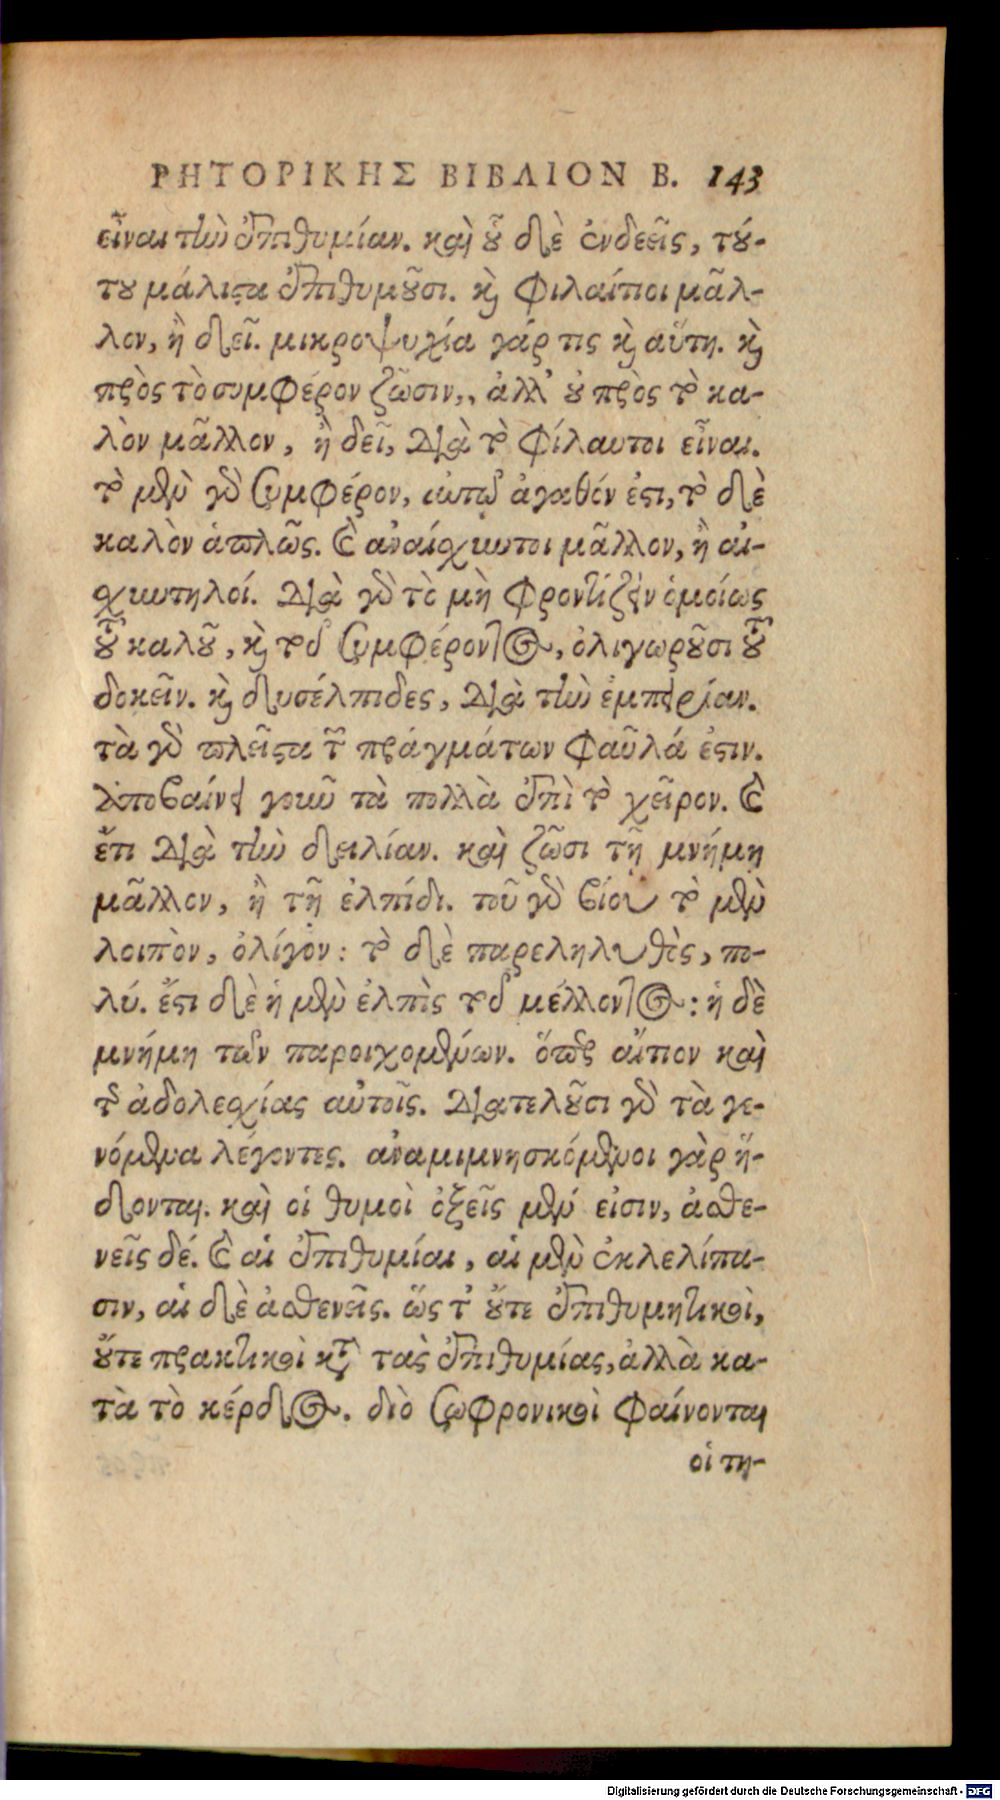 ΡΗΤΟΡΙΚΗΣ ΒΙΒΛΙΟΝ Β. 143
εἶναι τὴν ἐπιθυμίαν. καὶ οὗ δὲ ἐνδεεῖς, τού-
του μάλιστα ἐπιθυμοῦσι. καὶ φιλαίτιοι μᾶλ-
λον, ἢ δεῖ. μικροψυχία γάρ τις καὶ αὕτη. καὶ
πρὸς τὸ συμφέρον ζῶσιν,, ἀλλ' οὐ πρὸς τὸ κα-
λὸν μᾶλλον, ἢ δεῖ, διὰ τὸ φίλαυτοι εἶναι.
τὸ μὲν γὰρ συμφέρον, αὐτῷ ἀγαθόν ἐστι, τὸ δὲ
καλὸν ἁπλῶς. καὶ ἀναίσχυντοι μᾶλλον, ἢ αἰ-
σχυντηλοί. διὰ γὰρ τὸ μὴ φροντίζειν ὁμοίως
τοῦ καλοῦ, καὶ τοῦ συμφέροντος, ὀλιγωροῦσι τοῦ
δοκεῖν. καὶ δυσέλπιδες, διὰ τὴν ἐμπειρίαν.
τὰ γὰρ πλεῖστα τῶν πραγμάτων φαῦλά ἐστιν.
ἀποβαίνει γοῦν τὰ πολλὰ ἐπὶ τὸ χεῖρον. καὶ
ἔτι διὰ τὴν δειλίαν. καὶ ζῶσι τῇ μνήμῃ
μᾶλλον, ἢ τῇ ἐλπίδι. τοῦ γὰρ βίου τὸ μὲν
λοιπὸν, ὀλίγον: τὸ δὲ παρεληλυθὸς, πο-
λύ. ἔστι δὲ ἡ μὲν ἐλπὶς τοῦ μέλλοντος: ἡ δὲ
μνήμη τῶν παροιχομένων. ὅπερ αἴτιον καὶ
τῆς ἀδολεσχίας αὐτοῖς. διατελοῦσι γὰρ τὰ γε-
νόμενα λέγοντες. ἀναμιμνησκόμενοι γὰρ ἥ-
δονται. καὶ οἱ θυμοὶ ὀξεῖς μέν εἰσιν, ἀσθε-
νεῖς δέ. καὶ αἱ ἐπιθυμίαι, αἱ μὲν ἐκλελοίπα-
σιν, αἱ δὲ ἀσθενεῖς. ὥς τ' οὔτε ἐπιθυμητικοὶ,
οὔτε πρακτικοὶ κατὰ τὰς ἐπιθυμίας, ἀλλὰ κα-
τὰ τὸ κέρδος. διὸ σωφρονικοὶ φαίνονται
οἱ τη-
Digitalisierung gefördert durch die Deutsche Forschungsgemeinschaft - DFG